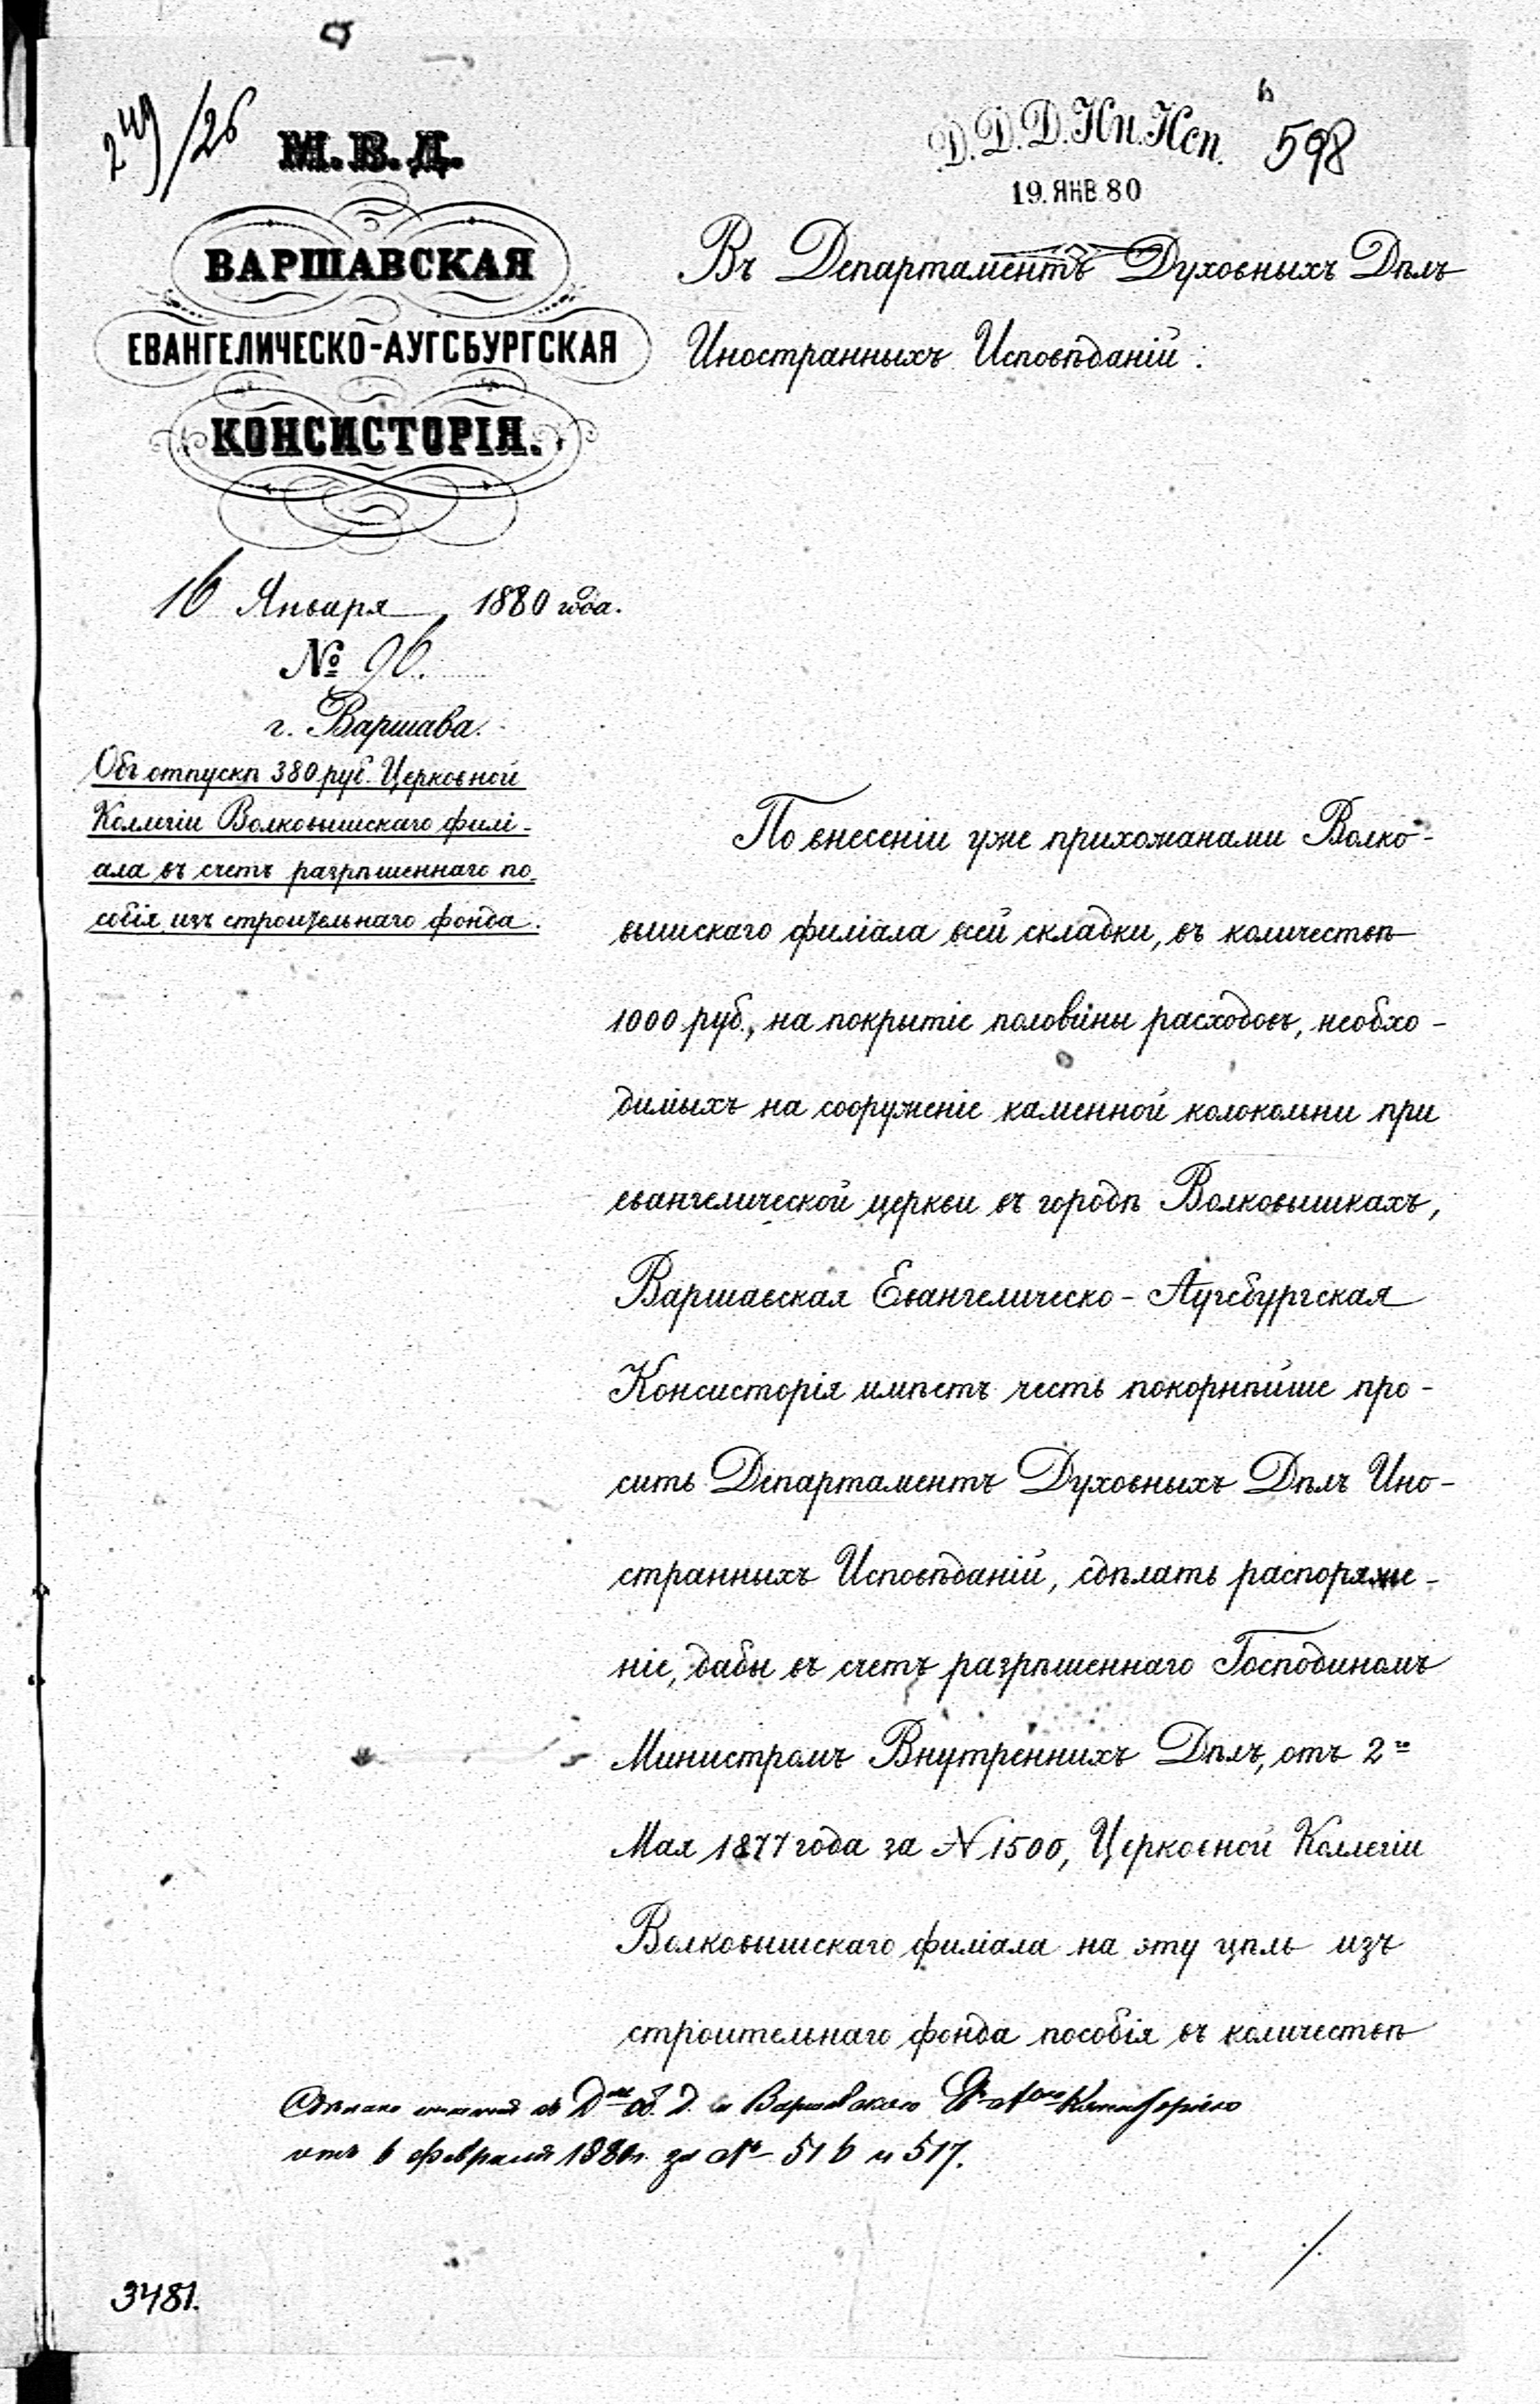 249/26
М.В.Д.
ВАРШАВСКАЯ
ЕВАНГЕЛИЧЕСКО-АУГСБУРГСКАЯ
КОНСИСТОРІЯ.
16 Января 1880 года.
№ 96.
г. Варшава.
Объ отпускѣ 380 руб. Церковной
Коллегіи Волковышскаго филі-
ала въ счетъ разрѣшеннаго по-
собія изъ строительнаго фонда.
Д.Д.Д.Ин.Исп. 598
19. ЯНВ 80
Въ Департаментъ Духовныхъ Дѣлъ
Иностранныхъ Исповѣданій.
По внесеніи уже прихожанами Волко-
вышскаго филіала всей складки, въ количествѣ
1000 руб., на покрытіе половины расходовъ, необхо-
димыхъ на сооруженіе каменной колокольни при
евангелической церкви въ городѣ Волковышкахъ,
Варшавская Евангелическо-Аугсбургская
Консисторія имѣетъ честь покорнѣйше про-
сить Департаментъ Духовныхъ Дѣлъ Ино-
странныхъ Исповѣданій, сдѣлать распоряже-
ніе, дабы въ счетъ разрѣшеннаго Господиномъ
Министромъ Внутреннихъ Дѣлъ, отъ 2го
Мая 1877 года за № 1500, Церковной Коллегіи
Волковышскаго филіала на эту цѣль изъ
строительнаго фонда пособія въ количествѣ
отъ 6 февраля 1880г. за № 516 и 517.
./.
3481.